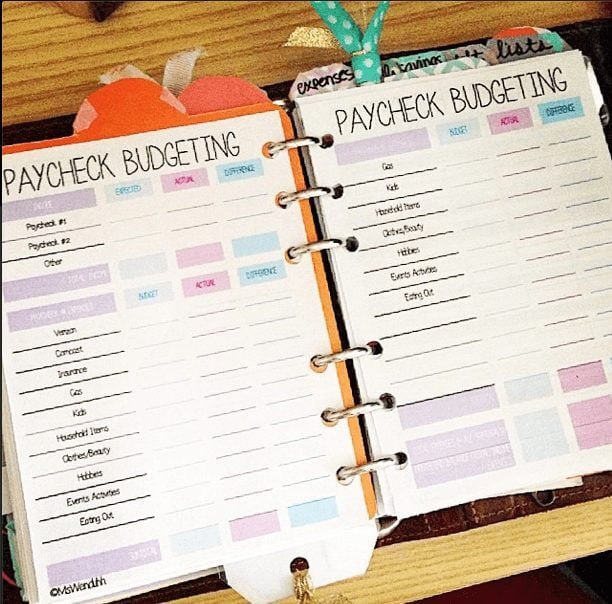 expenses savings lists
PAYCHECK BUDGETING
INCOME EXPECTED ACTUAL DIFFERENCE
Paycheck #1
Paycheck #2
Other
TOTAL INCOME
BUDGET ACTUAL DIFFERENCE
Verizon
Comcast
Insurance
Gas
Kids
Household Items
Clothes/Beauty
Hobbies
Events Activities
Eating Out
SUBTOTAL
©MsWenduhh
PAYCHECK BUDGETING
BUDGET ACTUAL DIFFERENCE
Gas
Kids
Household Items
Clothes/Beauty
Hobbies
Events Activities
Eating Out